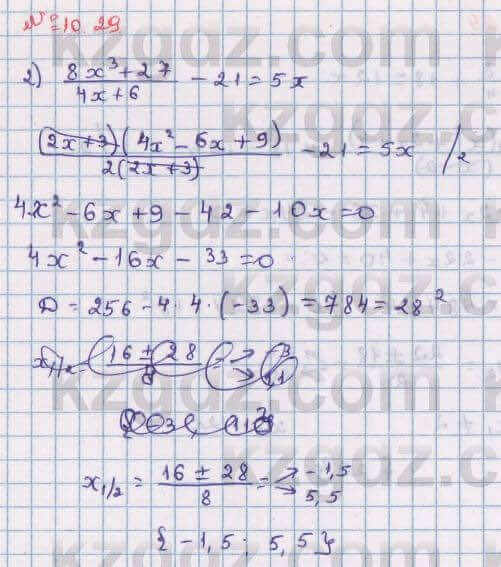 № 10.29
2) (8x³+27)/(4x+6) - 21 = 5x
(2x+3)(4x² - 6x + 9)/2(2x+3) - 21 = 5x /2
4x² - 6x + 9 - 42 - 10x = 0
4x² - 16x - 33 = 0
D = 256 - 4·4·(-33) = 784 = 28²
x₁/₂ = (16 ± 28)/8 =
x₁/₂ = (16 ± 28)/8 = → -1,5 → 5,5
{ -1,5 ; 5,5 }
kzgdz.com